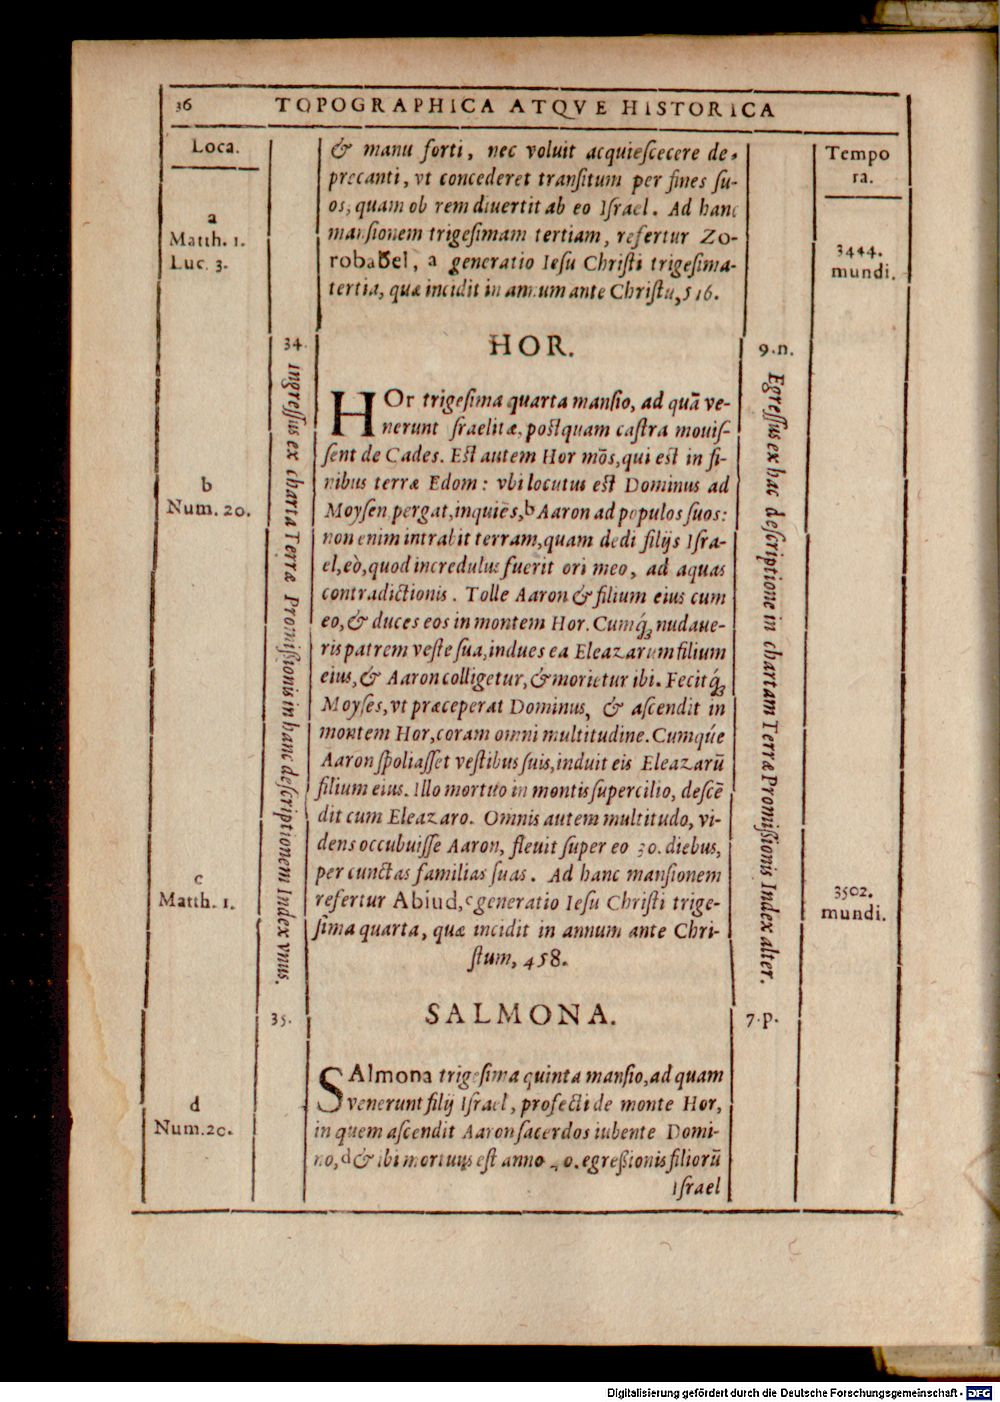 36 TOPOGRAPHICA ATQVE HISTORICA
Loca.
Tempora.
& manu forti, nec voluit acquieſcecere de-
precanti, vt concederet tranſitum per fines ſu-
os, quam ob rem diuertit ab eo Iſrael. Ad hanc
manſionem trigeſimam tertiam, refertur Zo-
robabel, a generatio Ieſu Chriſti trigeſima-
tertia, quæ incidit in annum ante Chriſtū, 516.
a
Matth. 1.
Luc. 3.
3444.
mundi.
34.
HOR.
9.n.
Ingreſſus ex charta Terræ Promiſſionis in hanc deſcriptionem Index vnus.
Egreſſus ex hac deſcriptione in chartam Terræ Promiſſionis Index alter.
HOr trigeſima quarta manſio, ad quā ve-
nerunt Iſraelitæ, poſtquam caſtra mouiſ-
ſent de Cades. Eſt autem Hor mōs, qui eſt in fi-
nibus terræ Edom: vbi locutus eſt Dominus ad
Moyſen pergat, inquiēs, b Aaron ad populos ſuos:
non enim intrabit terram, quam dedi filijs Iſra-
el, eò, quod incredulus fuerit ori meo, ad aquas
contradictionis. Tolle Aaron & filium eius cum
eo, & duces eos in montem Hor. Cumq́ꝫ nudaue-
ris patrem veſte ſua, indues ea Eleazarum filium
eius, & Aaron colligetur, & morietur ibi. Fecitq́ꝫ
Moyſes, vt præceperat Dominus, & aſcendit in
montem Hor, coram omni multitudine. Cumq́ue
Aaron ſpoliaſſet veſtibus ſuis, induit eis Eleazarū
filium eius. Illo mortuo in montis ſupercilio, deſcē
dit cum Eleazaro. Omnis autem multitudo, vi-
dens occubuiſſe Aaron, fleuit ſuper eo 30. diebus,
per cunctas familias ſuas. Ad hanc manſionem
refertur Abiud, c generatio Ieſu Chriſti trige-
ſima quarta, quæ incidit in annum ante Chri-
ſtum, 458.
b
Num. 20.
c
Matth. 1.
3502.
mundi.
35.
SALMONA.
7.p.
SAlmona trigeſima quinta manſio, ad quam
venerunt filij Iſrael, profecti de monte Hor,
in quem aſcendit Aaron ſacerdos iubente Domi-
no, d & ibi mortuus eſt anno 40. egreſſionis filiorū
Iſrael
d
Num. 20.
Digitalisierung gefördert durch die Deutsche Forschungsgemeinschaft - DFG